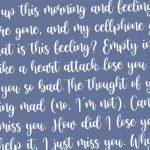 up this morning and feeling
re gone, and my cellphone
hat is this feeling? Empty in
ike a heart attack.lose you
you so bad. The thought of y
ng mad (no, I'm not). (can
miss you. How did I lose yo
help it, I just miss you. Wh